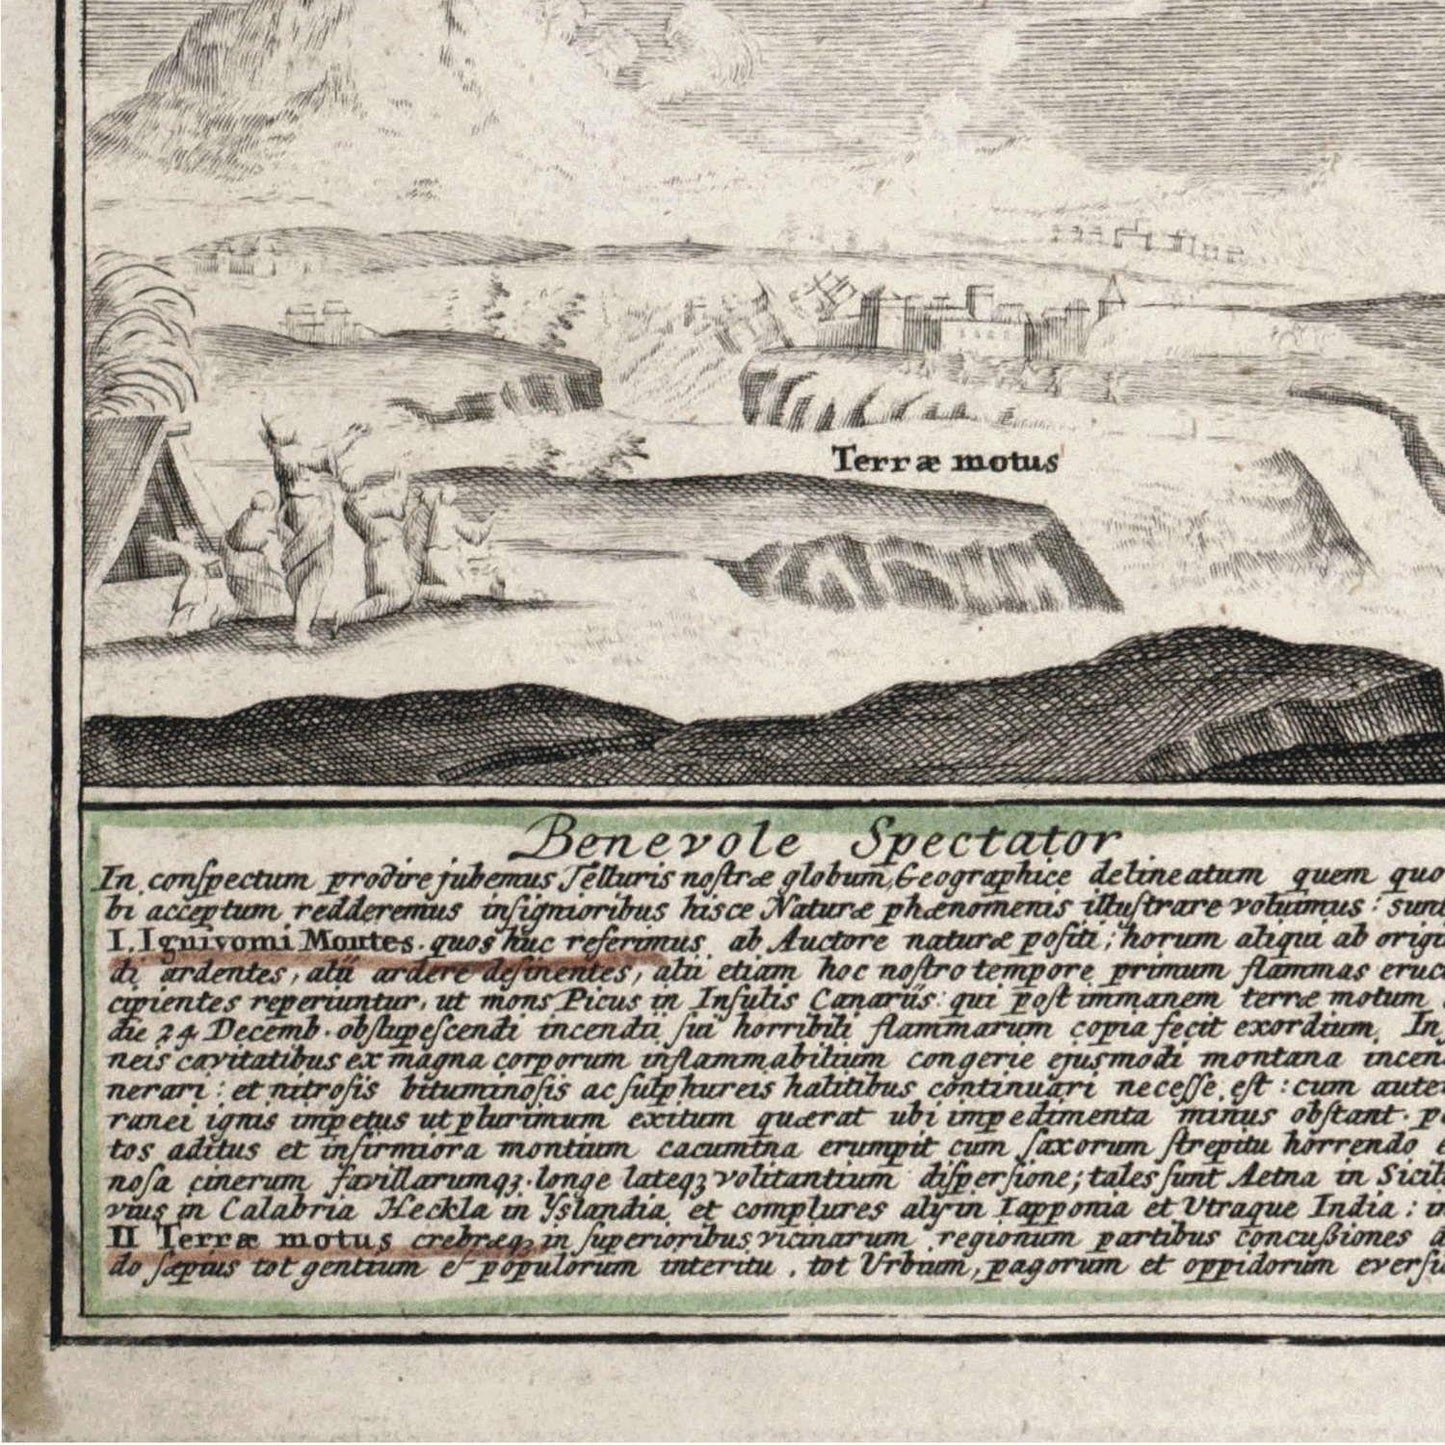 Terræ motus
Benevole Spectator
In conſpectum prodire jubemus Telluris noſtræ globum, Geographice delineatum quem quo
bi acceptum redderemus inſignioribus hisce Naturæ phænomenis illuſtrare voluimus: sunt
I. Ignivomi Montes. quos huc referimus ab Auctore naturæ poſiti; horum aliqui ab origi
di ardentes, alii ardere deſinentes, alii etiam hoc noſtro tempore primum flammas eruc
cipientes reperiuntur, ut mons Picus in Inſulis Canariis: qui poſt immanem terræ motum
die 24 Decemb. obſtupeſcendi incendii ſui horribili flammarum copia fecit exordium. In
neis cavitatibus ex magna corporum inflammabilium congerie ejusmodi montana incen
nerari: et nitroſis bituminoſis ac ſulphureis halitibus continuari neceſſe eſt: cum aute
ranei ignis impetus utplurimum exitum quærat ubi impedimenta minus obſtant. p
tos aditus et infirmiora montium cacumina erumpit cum ſaxorum ſtrepitu horrendo e
noſa cinerum favillarumqꝫ longe lateqꝫ volitantium diſperſione; tales ſunt Aetna in Sicil
vius in Calabria Heckla in Yslandia et complures alij in Iapponia et Utraque India: in
II Terræ motus crebræqꝫ in ſuperioribus vicinarum regionum partibus concuſsiones
do ſæpius tot gentium & populorum interitu, tot Urbium, pagorum et oppidorum everſi